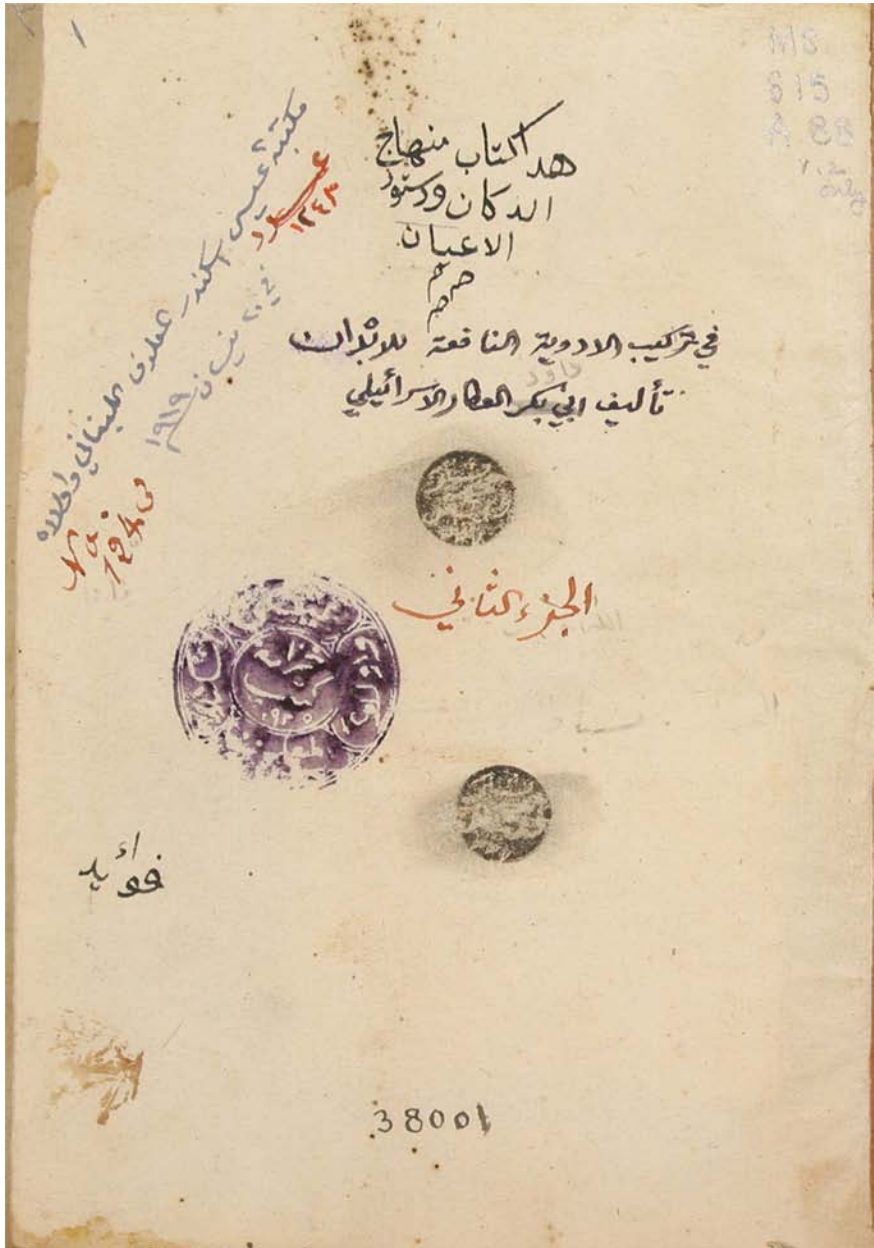 ١
MS
615
A 88
v.2
only
هدا كتاب منهاج
الدكان ودستور
الاعيان
في تركيب الادوية النافعة للابدان
داود
تأليف ابي بكر العطار الاسرائيلي
مكتبة عيسى اسكندر المعلوف اللبناني واولاده
في ٢٠ نيسان ١٩١٩
١٢٤٣
الجزء الثاني
خزانة
كتب
فوائد
38001